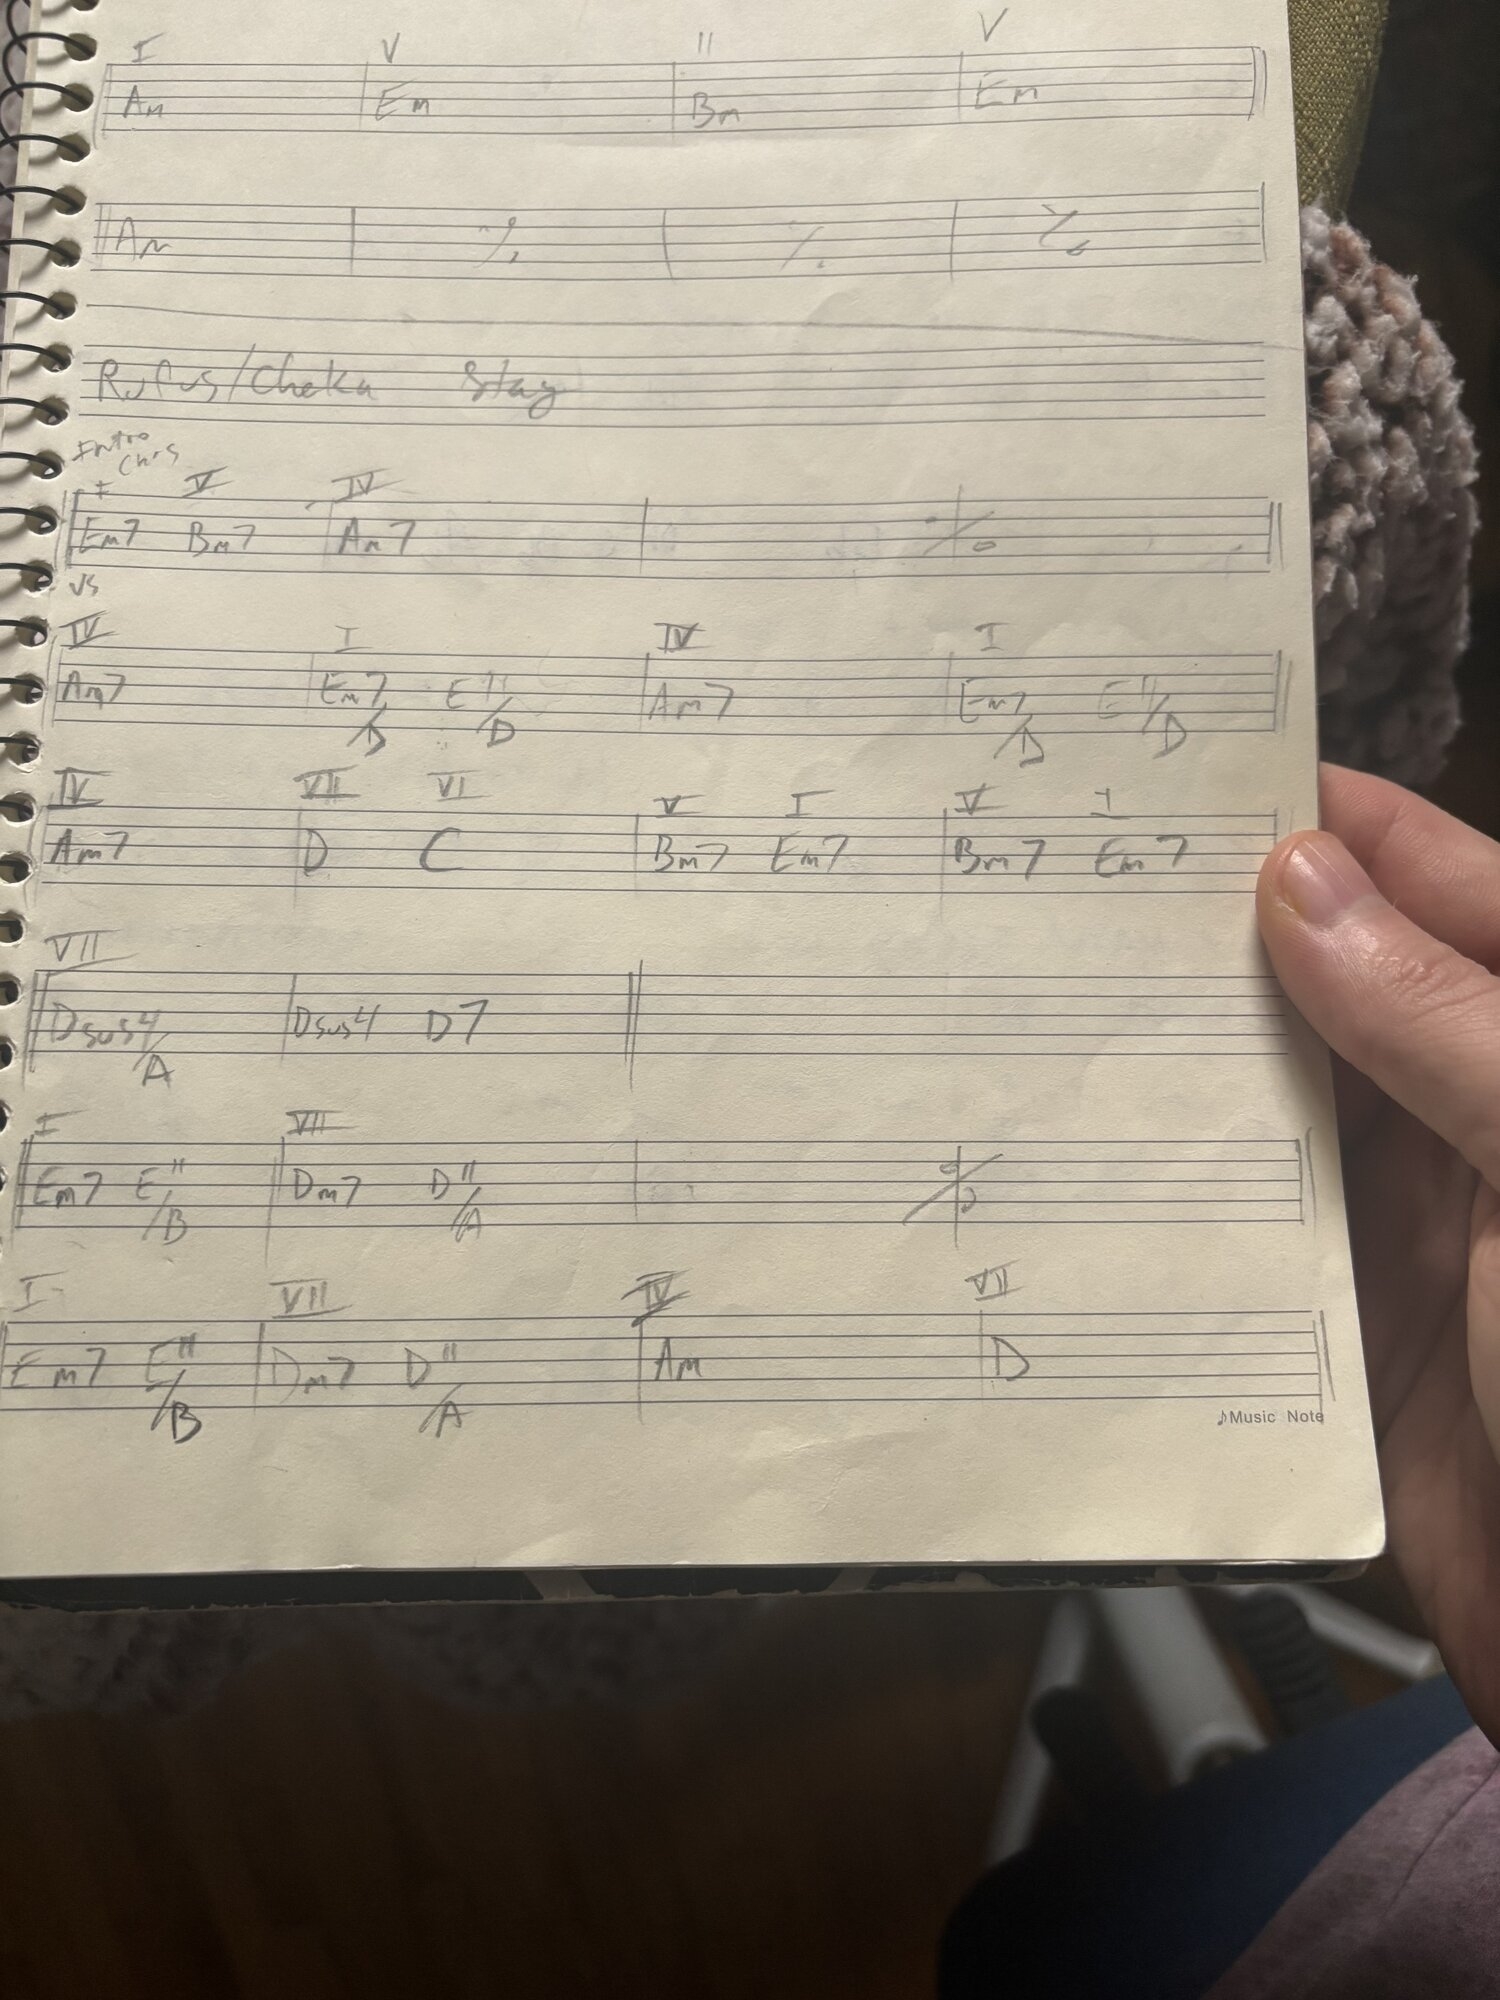 I V II V
Am Em Bm Em
Am % % %
Rufus/Chaka Stay
Intro
Chrs
I V IV
Em7 Bm7 Am7 %
VS
IV I IV I
Am7 Em7/D E11/D Am7 Em7/D E11/D
IV VII VI V I V I
Am7 D C Bm7 Em7 Bm7 Em7
VII
Dsus4/A Dsus4 D7
I VII
Em7 E11/B Dm7 D11/A %
I VII IV VII
Em7 E11/B Dm7 D11/A Am D
♪Music Note